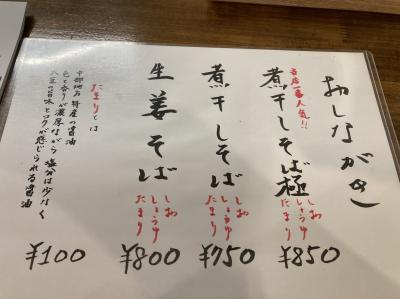 おしながき
当店一番人気!!
煮干しそば極
しお
しょうゆ
たまり
¥850
煮干しそば
しお
しょうゆ
たまり
¥750
生姜そば
しお
しょうゆ
たまり
¥800
たまりとは
中部地方特産の醤油
色と香りが濃厚ながら塩分は少なく
大豆の旨味とコクが感じられる醤油
¥100